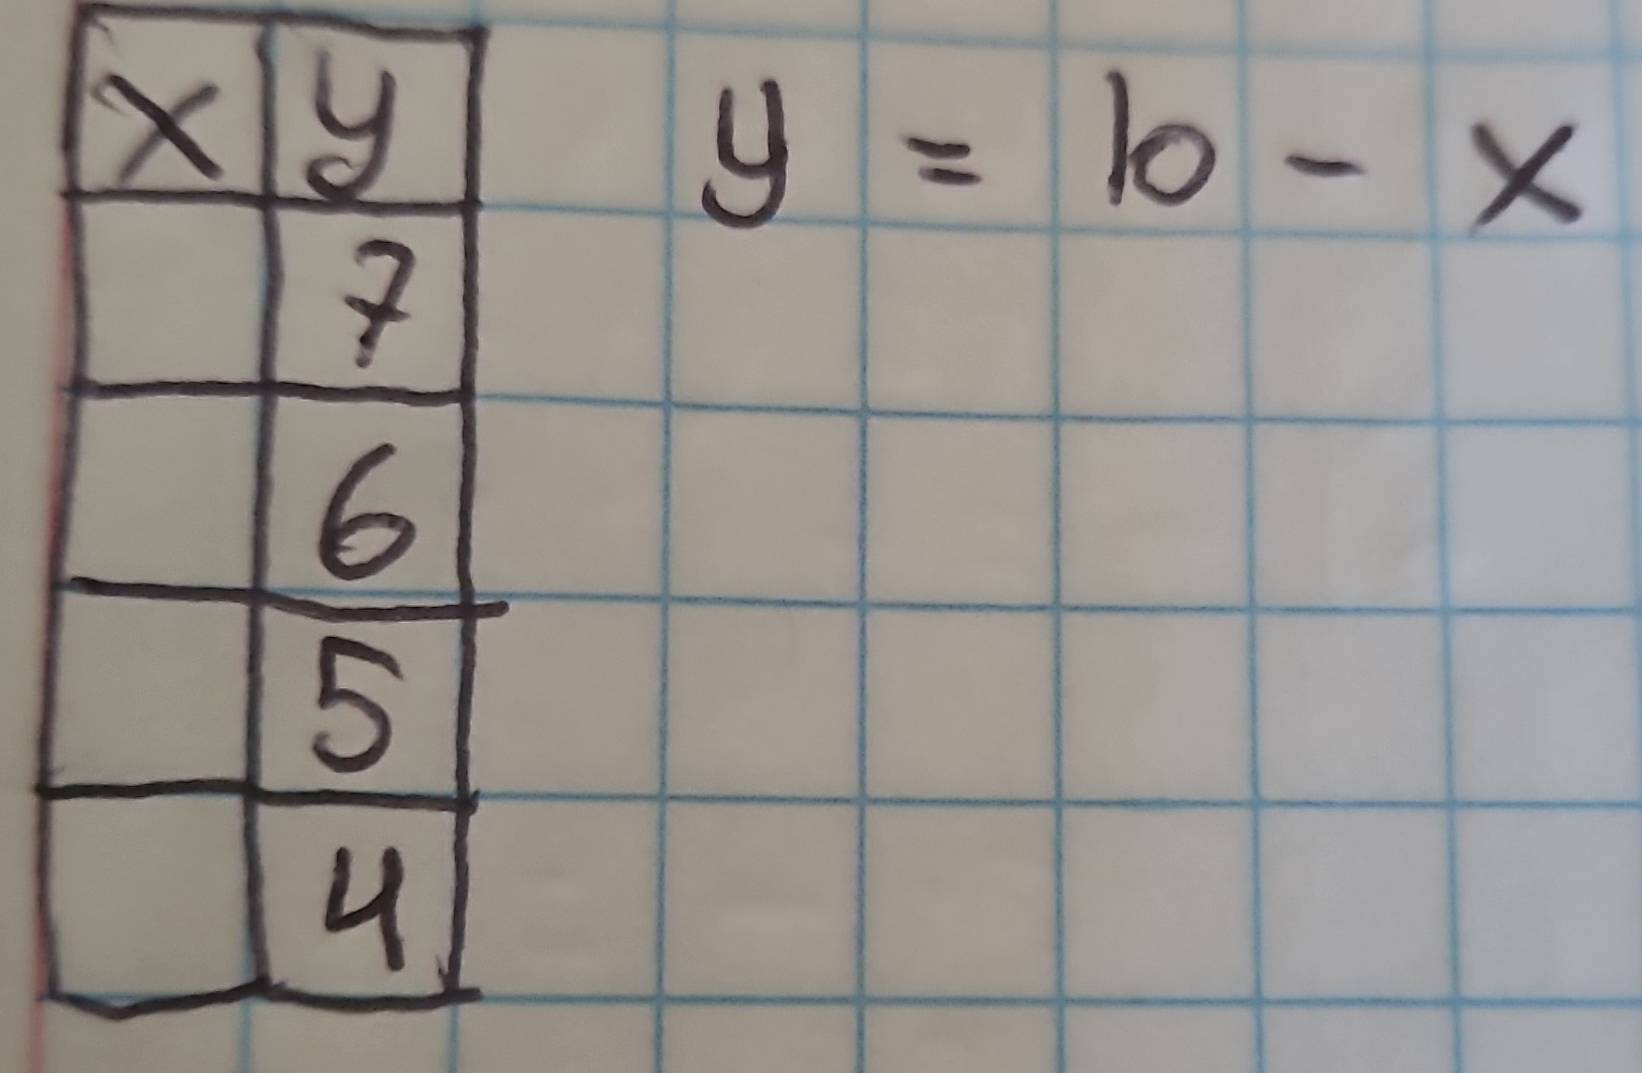 x y
7
6
5
4
y = 10 - x